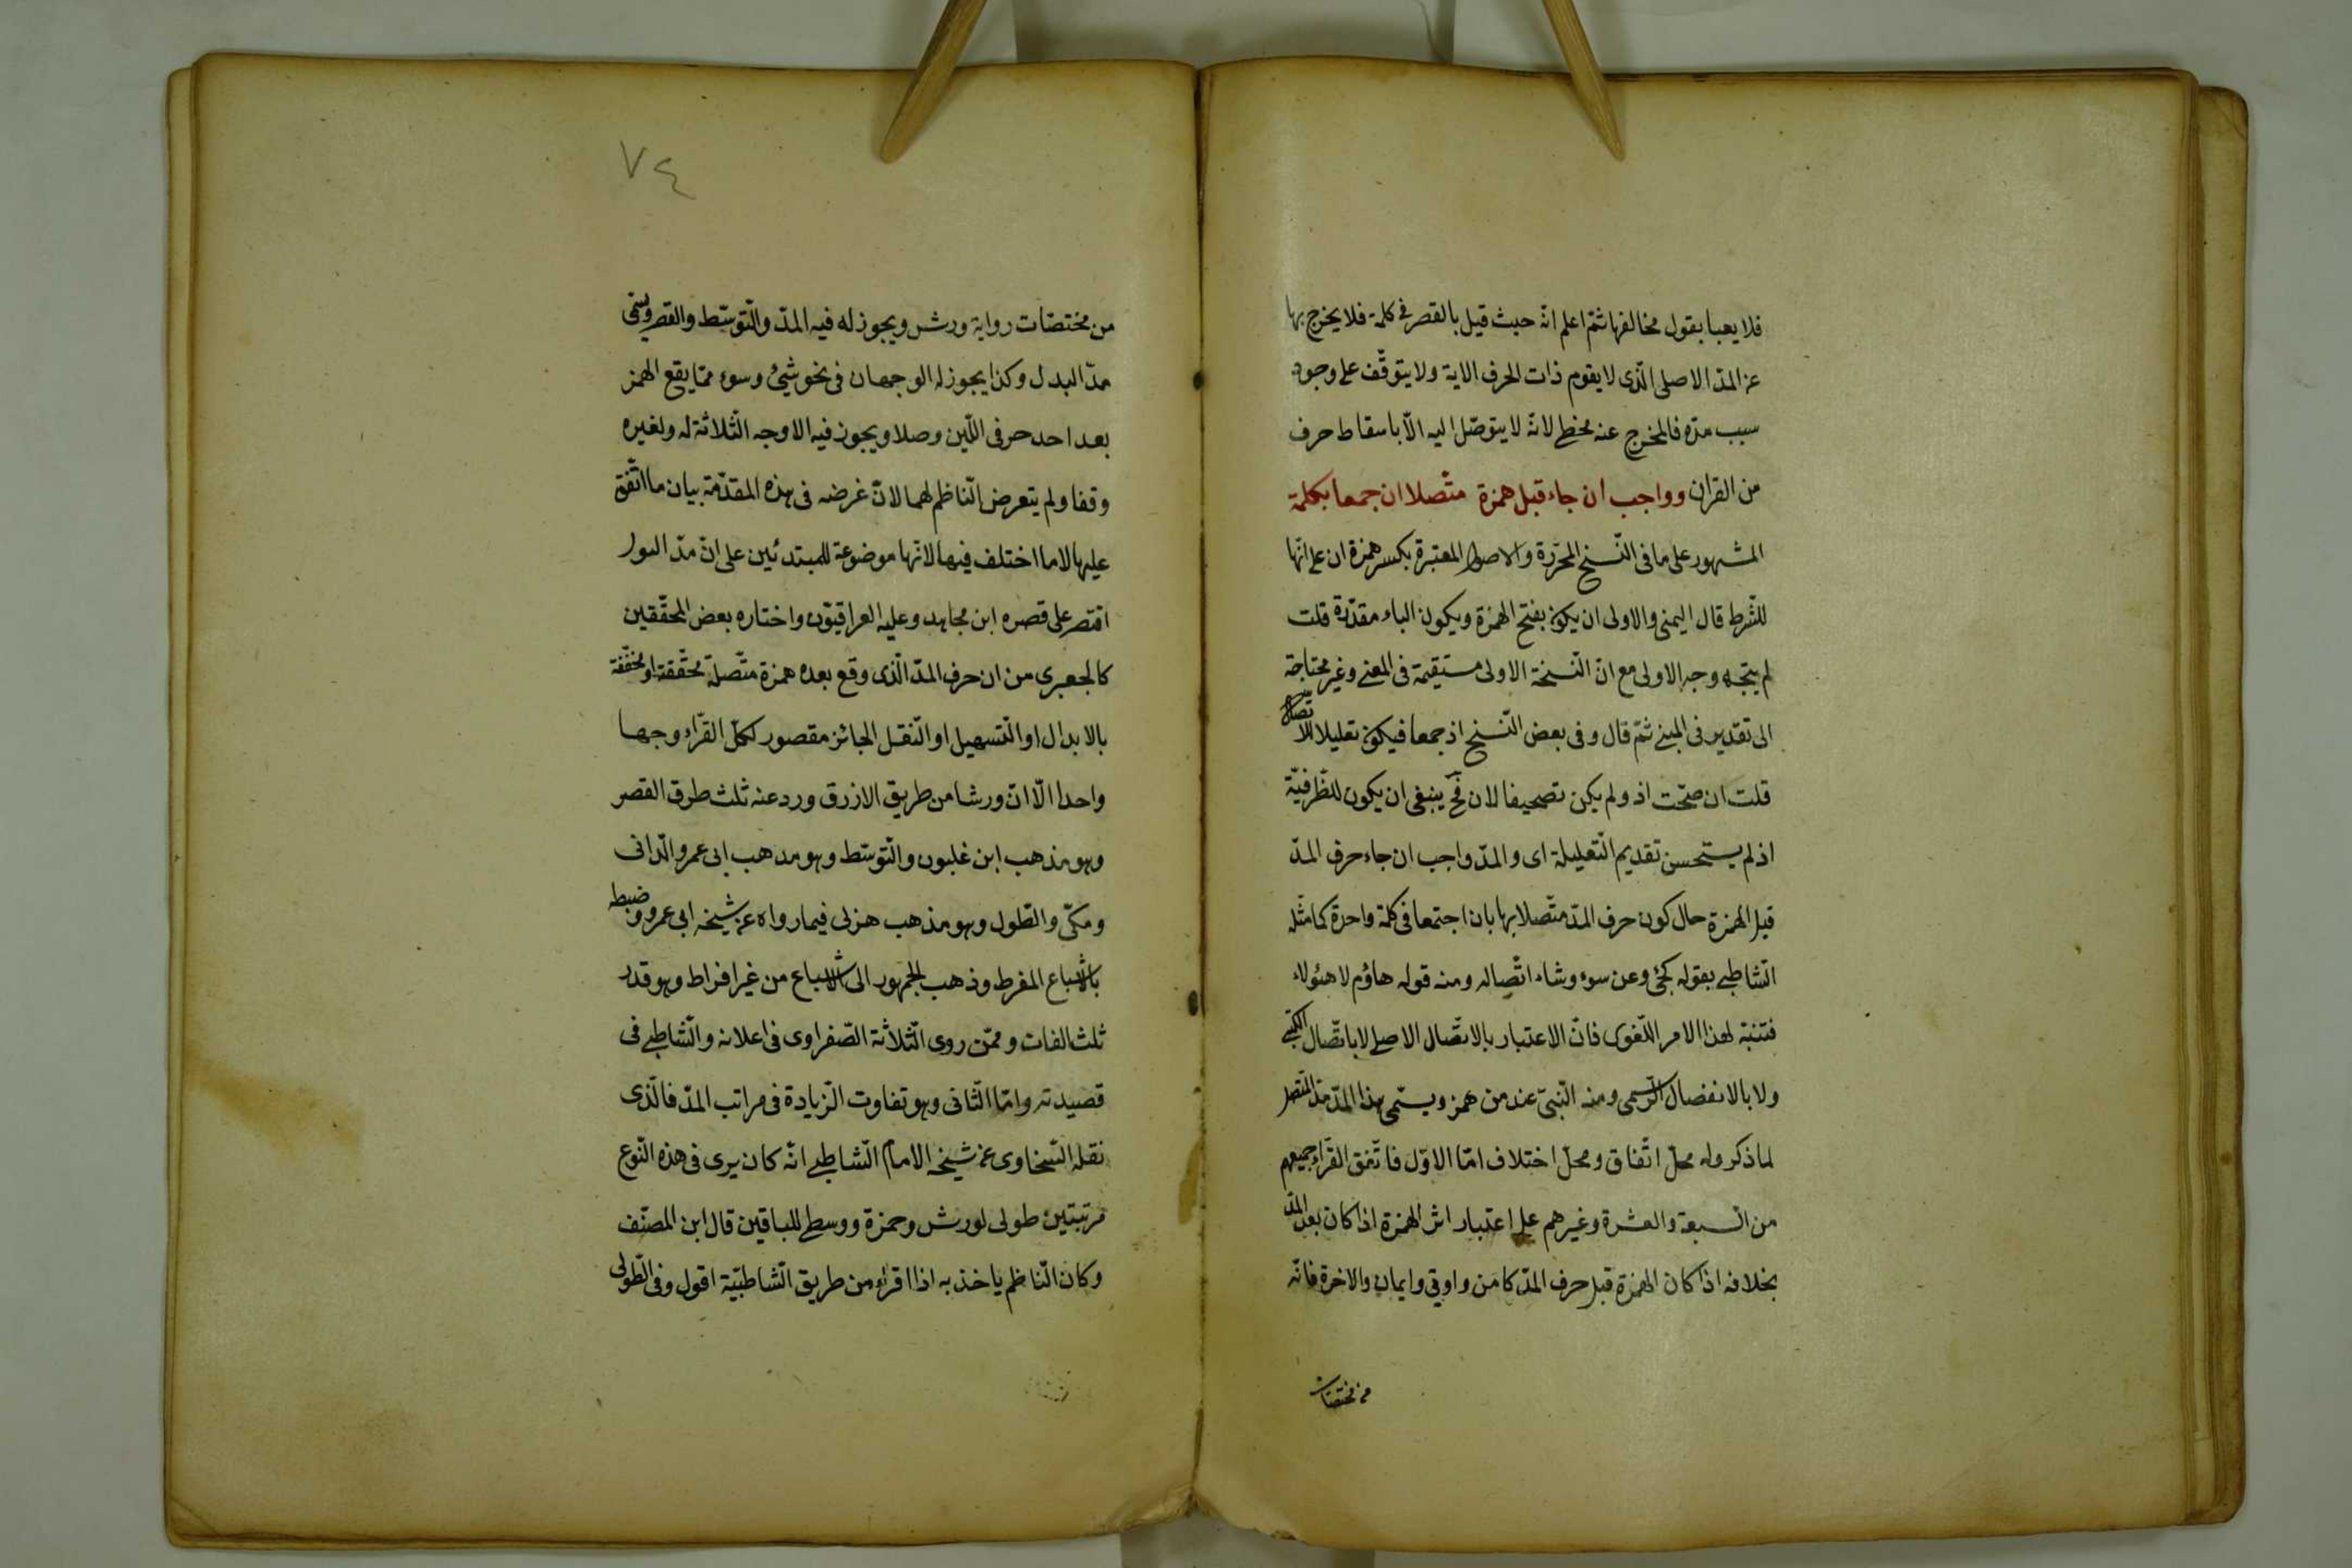 فلا يعبا بقول مخالفها ثمّ اعلم انّه حيث قيل بالقصر فى كلمة فلا يخرج بها
عن المدّ الاصلى الّذى لا يقوم ذات الحرف الاية ولا يتوقّف على وجود
سبب مدّه فالمخرج عنه مخطى لانّه لا يتوصّل اليه الّا باسقاط حرف
من القران وواجب ان جاء قبل همزة متّصلا ان جمعا بكلمة
المشهور على ما فى النّسخ المحرّرة والاصول المعتبرة بكسر همزة ان على انّها
للشّرط قال اليمنى والاولى ان يكون بفتح الهمزة ويكون الباء مقدّرة قلت
لم يتّجه وجه الاولى مع انّ النّسخة الاولى مستقيمة فى المعنى وغير محتاجة
الى تقدير فى المبنى ثمّ قال وفى بعض النّسخ اذ جمعا فيكون تعليلا للاتّصال
قلت ان صحّت اذ ولم يكن تصحيفا لان فح ينبغى ان يكون للظّرفيّة
اذ لم يستحسن تقديم التّعليلة اى والمدّ واجب ان جاء حرف المدّ
قبل الهمزة حال كون حرف المدّ متّصلا بها بان اجتمعا فى كلمة واحدة كما مثّله
الشّاطبى بقوله كجئ وعن سوء وشاء اتّصاله ومنه قوله هاؤم لا هئولاء
فتنبّه لهذا الامر اللّغوى فانّ الاعتبار بالاتّصال الاصلى لا باتّصال الكتبى
ولا بالانفصال الرّسمى ومنه النّبىّ عند من همز ويسمّى هذا المدّ مدّ المتّصل
لما ذكر وله محلّ اتّفاق ومحلّ اختلاف امّا الاوّل فاتّفق القرّاء جميعهم
من السّبعة والعشرة وغيرهم على اعتبار اثر الهمزة اذا كان بعد المدّ
بخلافه اذا كان الهمزة قبل حرف المدّ كامن واوتى وايمان والاخرة فانّه
من مختصّات
٧٤
من مختصّات رواية ورش ويجوز له فيه المدّ والتّوسّط والقصر ويسمّى
مدّ البدل وكذا يجوز له الوجهان فى نحو شئ وسوء ممّا يقع الهمز
بعد احد حرفى اللّين وصلا ويجوز فيه الاوجه الثّلاثة له ولغيره
وقفا ولم يتعرض النّاظم لهما لانّ غرضه فى هذه المقدّمة بيان ما اتّفق
عليها لا ما اختلف فيها لانّها موضوعة للمبتدئين على انّ مدّ البدل
اقتصر على قصره ابن مجاهد وعليه العراقيّون واختاره بعض المحقّقين
كالجعبرى من ان حرف المدّ الّذى وقع بعده همزة متّصلة محقّقة او مخفّفة
بالابدال او التّسهيل او النّقل الجائز مقصور لكلّ القرّاء وجها
واحدا الّا انّ ورشا من طريق الازرق ورد عنه ثلث طرق القصر
وهو مذهب ابن غلبون والتّوسّط وهو مذهب ابى عمرو الدّانى
ومكّى والطّول وهو مذهب هزلى فيما رواه عن شيخه ابى عمرو وضبطه
بالاشباع المفرط وذهب الجمهور الى الاشباع من غير افراط وهو قدر
ثلث الفات وممّن روى الثّلاثة الصّفراوى فى اعلانه والشّاطبى فى
قصيدته وامّا الثّانى وهو تفاوت الزّيادة فى مراتب المدّ فالّذى
نقله السّخاوى عن شيخه الامام الشّاطبى انّه كان يرى فى هذه النّوع
مرتبتين طولى لورش وحمزة ووسطى للباقين قال ابن المصنّف
وكان النّاظم ياخذ به اذا اقراء من طريق الشّاطبيّة اقول وفى الطّولى